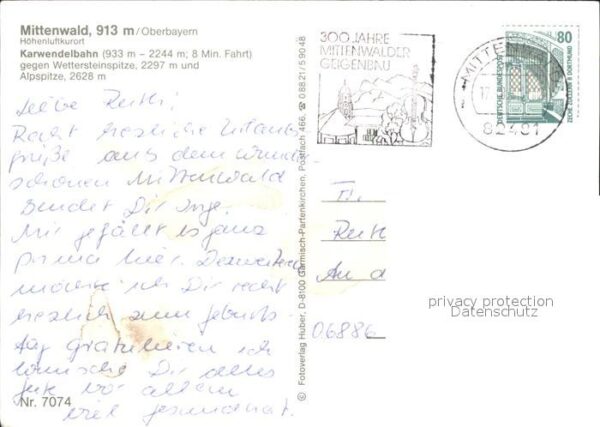 Mittenwald, 913 m/Oberbayern
Höhenluftkurort
Karwendelbahn (933 m – 2244 m; 8 Min. Fahrt)
gegen Wettersteinspitze, 2297 m und
Alpspitze, 2628 m
Liebe Ruth!
Recht herzliche Urlaubs
grüße aus dem wunder
schönen Mittenwald
sendet Dir Inge.
Mir gefällt es ganz
prima hier. Desweiteren
möchte ich Dir recht
herzlich zum Geburts-
tag gratulieren ich
wünsche Dir alles
gute vor allem
viel gesundheit.
Nr. 7074
© Fotoverlag Huber, D-8100 Garmisch-Partenkirchen, Postfach 466, ☎ 08821/59048
300 JAHRE
MITTENWALDER
GEIGENBAU
MITTENWALD
82481
80
DEUTSCHE BUNDESPOST
ZECHE ZOLLERN II DORTMUND
Fr.
Ruth
An d
06886
privacy protection
Datenschutz